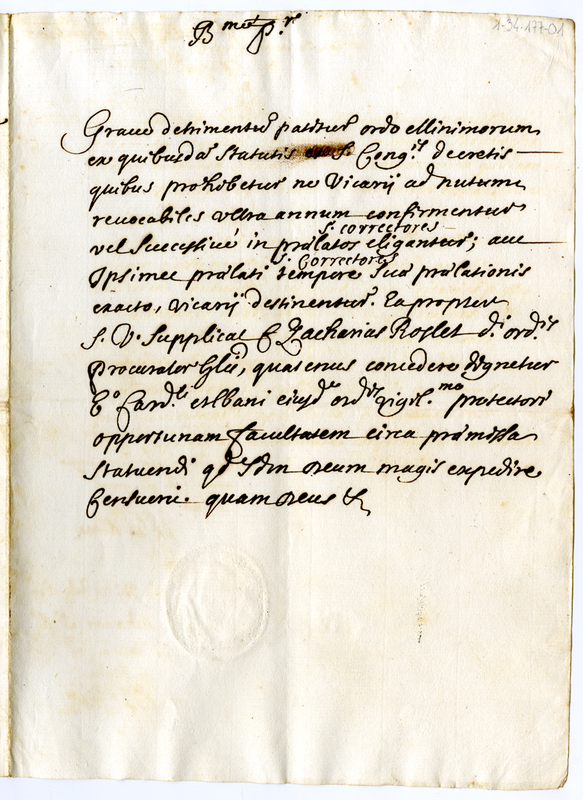 B.me P.r
1-34-177-01
Graue detrimentũ patitur ordo Minimorum
ex quibusdã statutis S. Cong.is decretis
quibus prohibetur ne Vicarij ad nutum
reuocabiles vltra annum confirmentur
s. correctores
vel Successiuè in prælatos eligantur; aut
s. Correctores
Ipsimet prælati tempore suæ prælationis
exacto, vicarij destinentur. Eapropter
S. V. Supplicat F Zacharias Roslet d.i ord.is
Procurator Glis, quatenus concedere dignetur
E.o Card.li Albani eiusdẽ ord.is vigil.mo protectori
opportunam facultatem circa præmissa
statuendi qd Sdm Deum magis expedire
Censuerit. quam Deus &